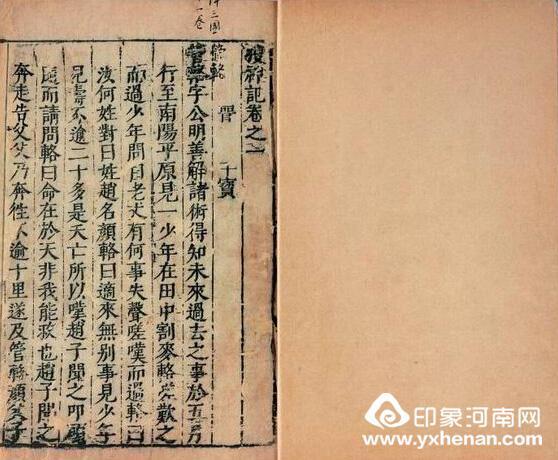 搜神記卷之一
晉 干寶
管輅字公明善解諸術得知未來過去之事於五月
行至南陽平原見一少年在田中割麥輅嗟歎之
而過少年問曰老丈有何事失聲嗟嘆而過輅曰
汝何姓對曰姓趙名顏輅曰適來無別事見少年
壽不逾二十多是夭亡所以嘆趙子聞之叩頭
而請問輅曰命在於天非我能救也趙子聞之
奔走告父父乃奔徃不逾十里遂及管輅顏父子
三國
管輅
一卷
印象河南网
www.yxhenan.com